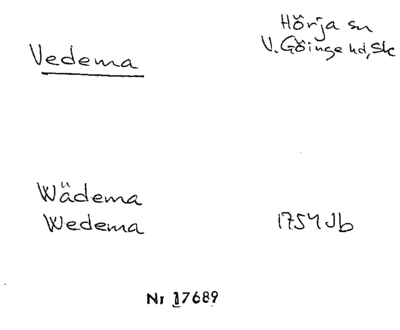 Hörja sn
Vedema
V. Göinge hd, Sk
Wädema
Wedema 1754 Jb
Nr 17689